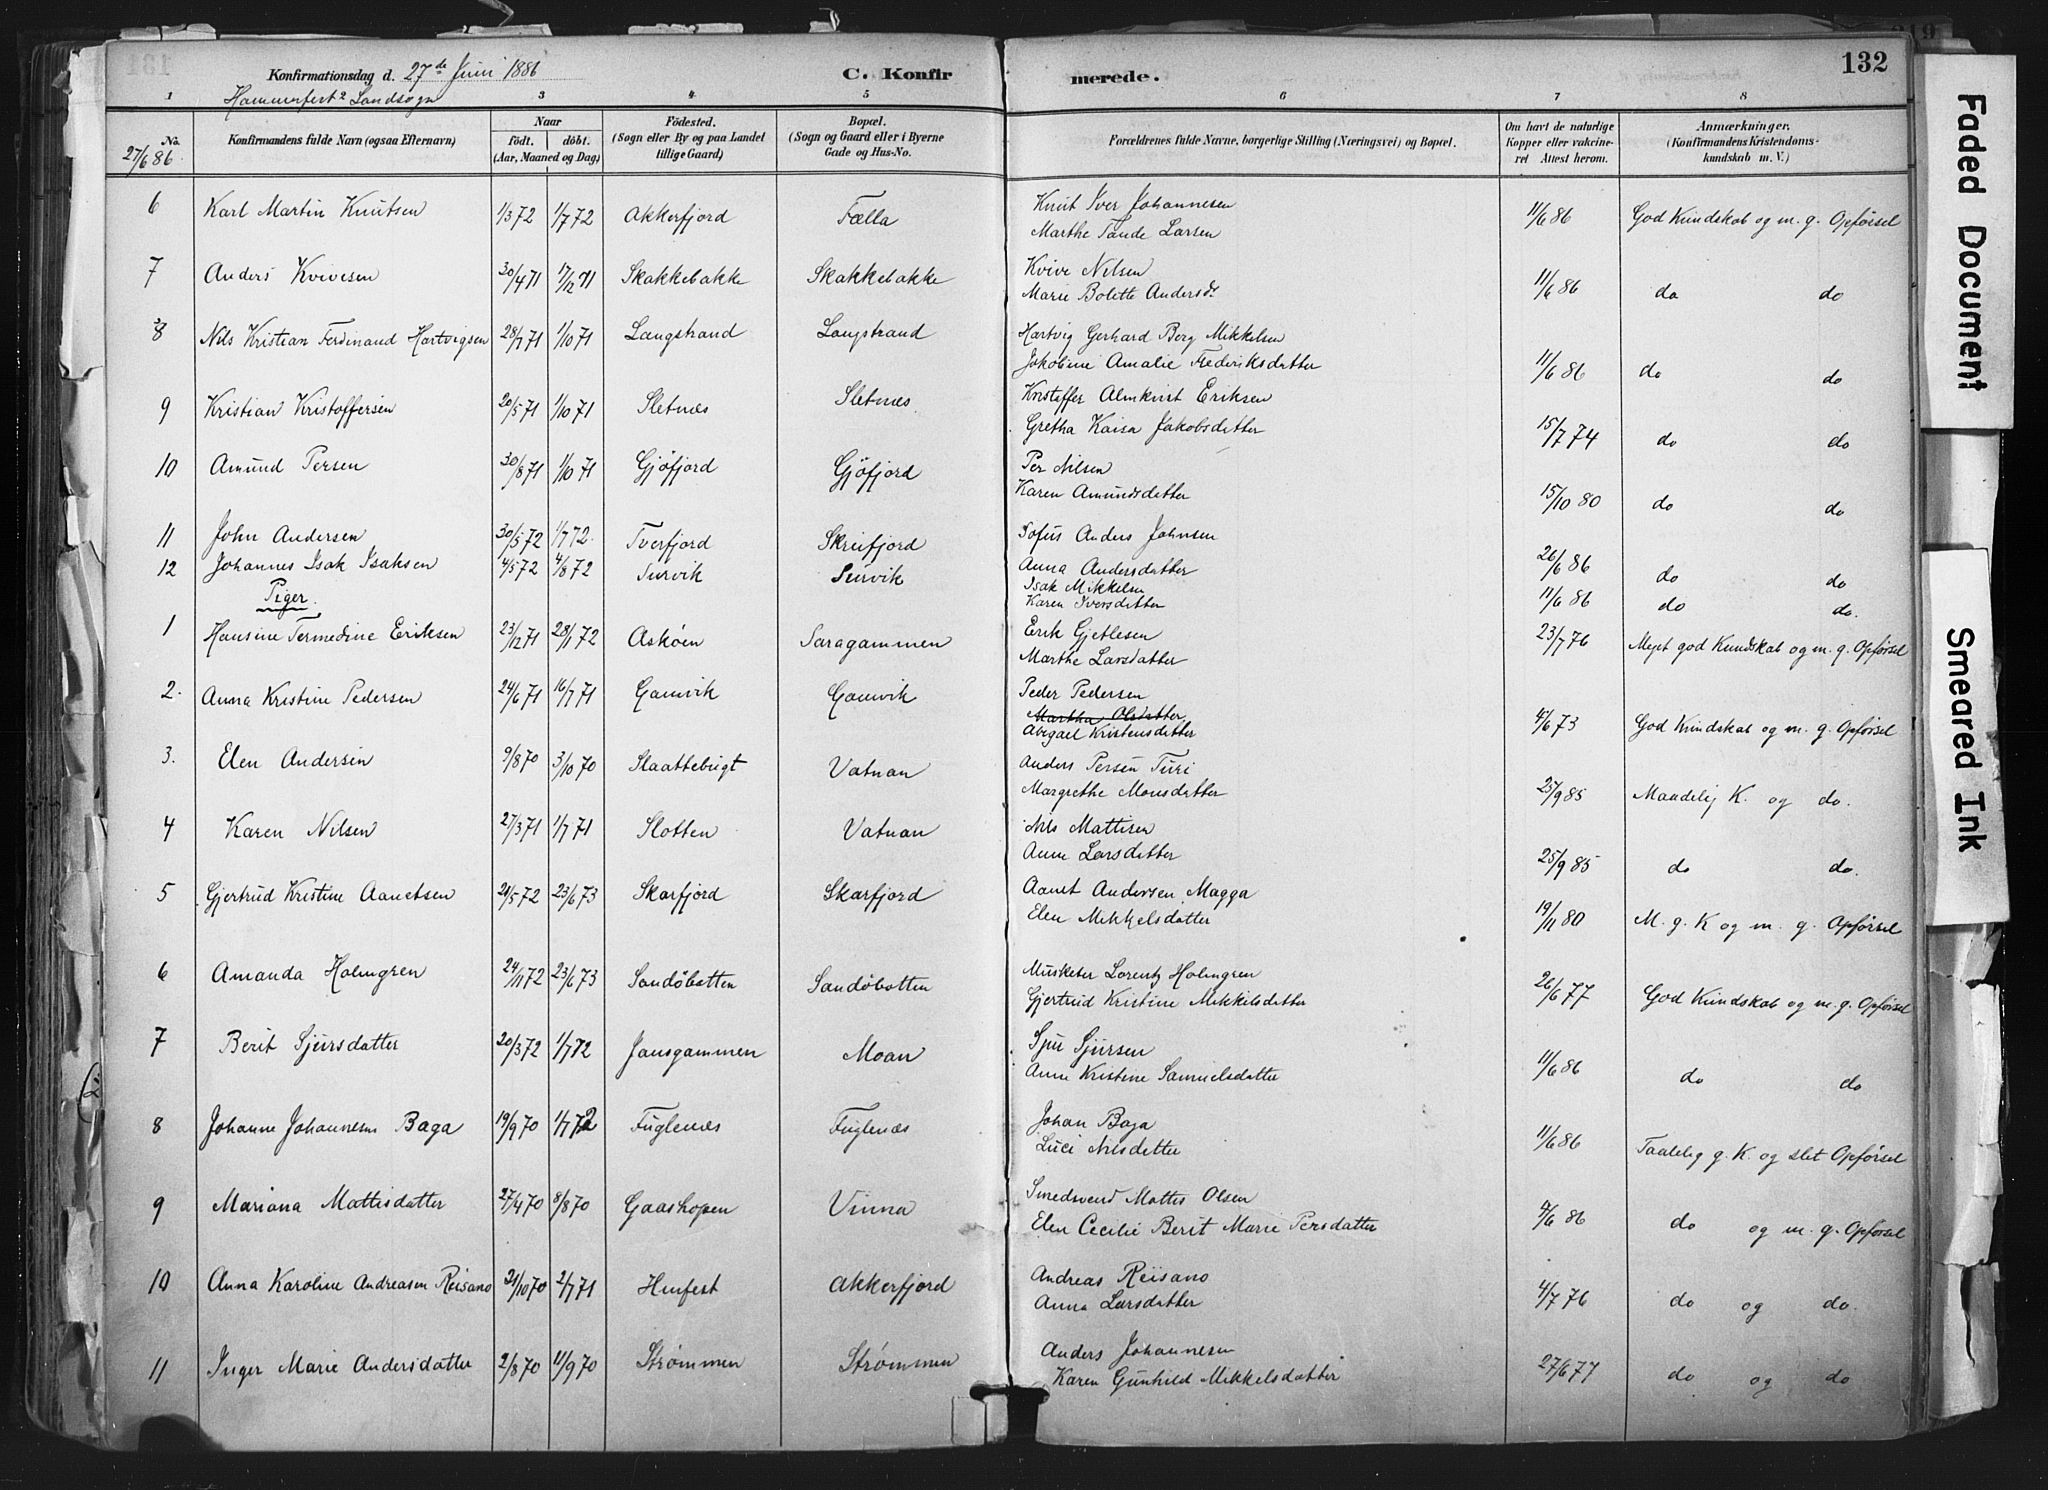 Konfirmationsdag d. 27de Juni 1886 C. Konfirmerede. 132
Hammerfest Landsogn
1 3 4 5 6 7 8
No. Konfirmandens fulde Navn (ogsaa Efternavn) Naar født. døbt. (Aar, Maaned og Dag) Fødested. (Sogn eller By og paa Landet tillige Gaard) Bopæl. (Sogn og Gaard eller i Byerne Gade og Hus-No. Forældrenes fulde Navne, borgerlige Stilling (Næringsvei) og Bopæl. Om havt de naturlige Kopper eller vakcineret Attest herom. Anmærkninger. (Konfirmandens Kristendomskundskab m. V.)
27/6 86.
6 Karl Martin Knutsen 1/3 72 1/7 72 Akkerfjord Fælla Knut Iver Johannesen 11/6 86 God Kundskab og m. g. Opførsel
Marthe Tande Larsen
7 Anders Kvivesen 30/4 71 17/12 71 Skakkebakke Skakkebakke Kvive Nilsen 11/6 86 do do
Marie Bolette Andersd.
8 Nils Kristian Ferdinand Hartvigsen 28/7 71 1/10 71 Langstrand Langstrand Hartvig Gerhard Berg Mikkelsen
Jakobine Amalie Frederiksdatter 11/6 86 do do
9 Kristian Kristoffersen 20/5 71 1/10 71 Sletnæs Sletnæs Kristoffer Almkvist Eriksen
Gretha Kaisa Jakobsdatter 15/7 74 do do
10 Amund Persen 30/8 71 1/10 71 Gjøfjord Gjøfjord Per Nilsen
Karen Amundsdatter 15/10 80 do do
11 John Andersen 30/5 72 1/7 72. Tverfjord Skreifjord Sofus Anders Johnsen
Anna Andersdatter 26/6 86 do do
12 Johannes Isak Isaksen 4/5 72 4/8 72 Survik Survik Isak Mikkelsen
Karen Iversdatter 11/6 86 do do.
Piger.
1 Hansine Termedine Eriksen 23/12 71 28/1 72 Askøen Saragammen Erik Gjetlesen 23/7 76 Meget god Kundskab og m. g. Opførsel
Marthe Larsdatter
2. Anna Kristine Pedersen 24/6 71 16/7 71 Gamvik Gamvik Peder Pedersen
Martha Olsdatter
Abigael Kristensdatter 4/6 73 God Kundskab og m. g. Opførsel
3. Elen Andersen 9/8 70 3/10 70 Slaattebugt Vatnan Anders Persen Turi
Margrethe Monsdatter 25/9 85 Maadelig K. og do.
4 Karen Nilsen 27/3 71 1/7 71 Slotten Vatnan Nils Mattisen
Anne Larsdatter 25/9 85 do do.
5 Gjertrud Kristine Aanetsen 21/5 72 23/6 73 Skarfjord Skarfjord Aanet Andersen Magga
Elen Mikkelsdatter 19/11 80 M. g. K og m. g. Opførsel
6 Amanda Holmgren 24/11 72 23/6 73 Sandøbotten Sandøbotten Musketer Lorentz Holmgren
Gjertrud Kristine Mikkelsdatter 26/6 77 God Kundskab og m. g. Opførsel
7 Berit Sjursdatter 20/3 72 1/7 72 Jansgammen Moan Sjur Sjursen
Anne Kristine Samuelsdatter 11/6 86 do do
8 Johanne Johannesen Baga 19/9 70 1/7 72 Fuglenæs Fuglenæs Johan Baga
Luci Nilsdatter 11/6 86 Taalelig g. K. og slet Opførsel
9 Mariana Mattisdatter 27/4 70 8/8 70 Gaashopen Vinna Smedsvend Mattis Olsen
Elen Cecilie Berit Marie Persdatter 4/6 86 do og m. g. Opførsel
10 Anna Karoline Andreasen Reisano 21/10 70 2/7 71 Hmfest Akkerfjord Andreas Reisano
Anna Larsdatter 4/7 76 do og do.
11 Inger Marie Andersdatter 2/8 70 11/9 70 Strømmen Strømmen Anders Johannesen
Karen Gunhild Mikkelsdatter 27/6 77 do og do
Faded Document
Smeared Ink